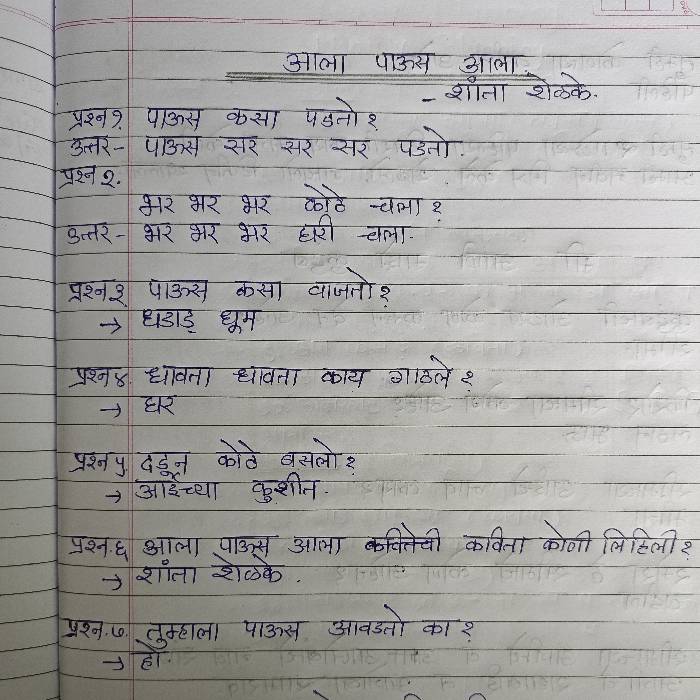 आला पाऊस आला
- शांता शेळके.
प्रश्न १. पाऊस कसा पडतो?
उत्तर - पाऊस सर सर सर पडतो.
प्रश्न २.
भर भर भर कोठे चला?
उत्तर - भर भर भर घरी चला.
प्रश्न ३ पाऊस कसा वाजतो?
→ धडाड् धूम
प्रश्न ४. धावता धावता काय गाठले?
→ घर
प्रश्न ५. दडून कोठे बसलो?
→ आईच्या कुशीत.
प्रश्न.६ आला पाऊस आला कवितेची कविता कोणी लिहिली?
→ शांता शेळके.
प्रश्न.७. तुम्हाला पाऊस आवडतो का?
→ हो.